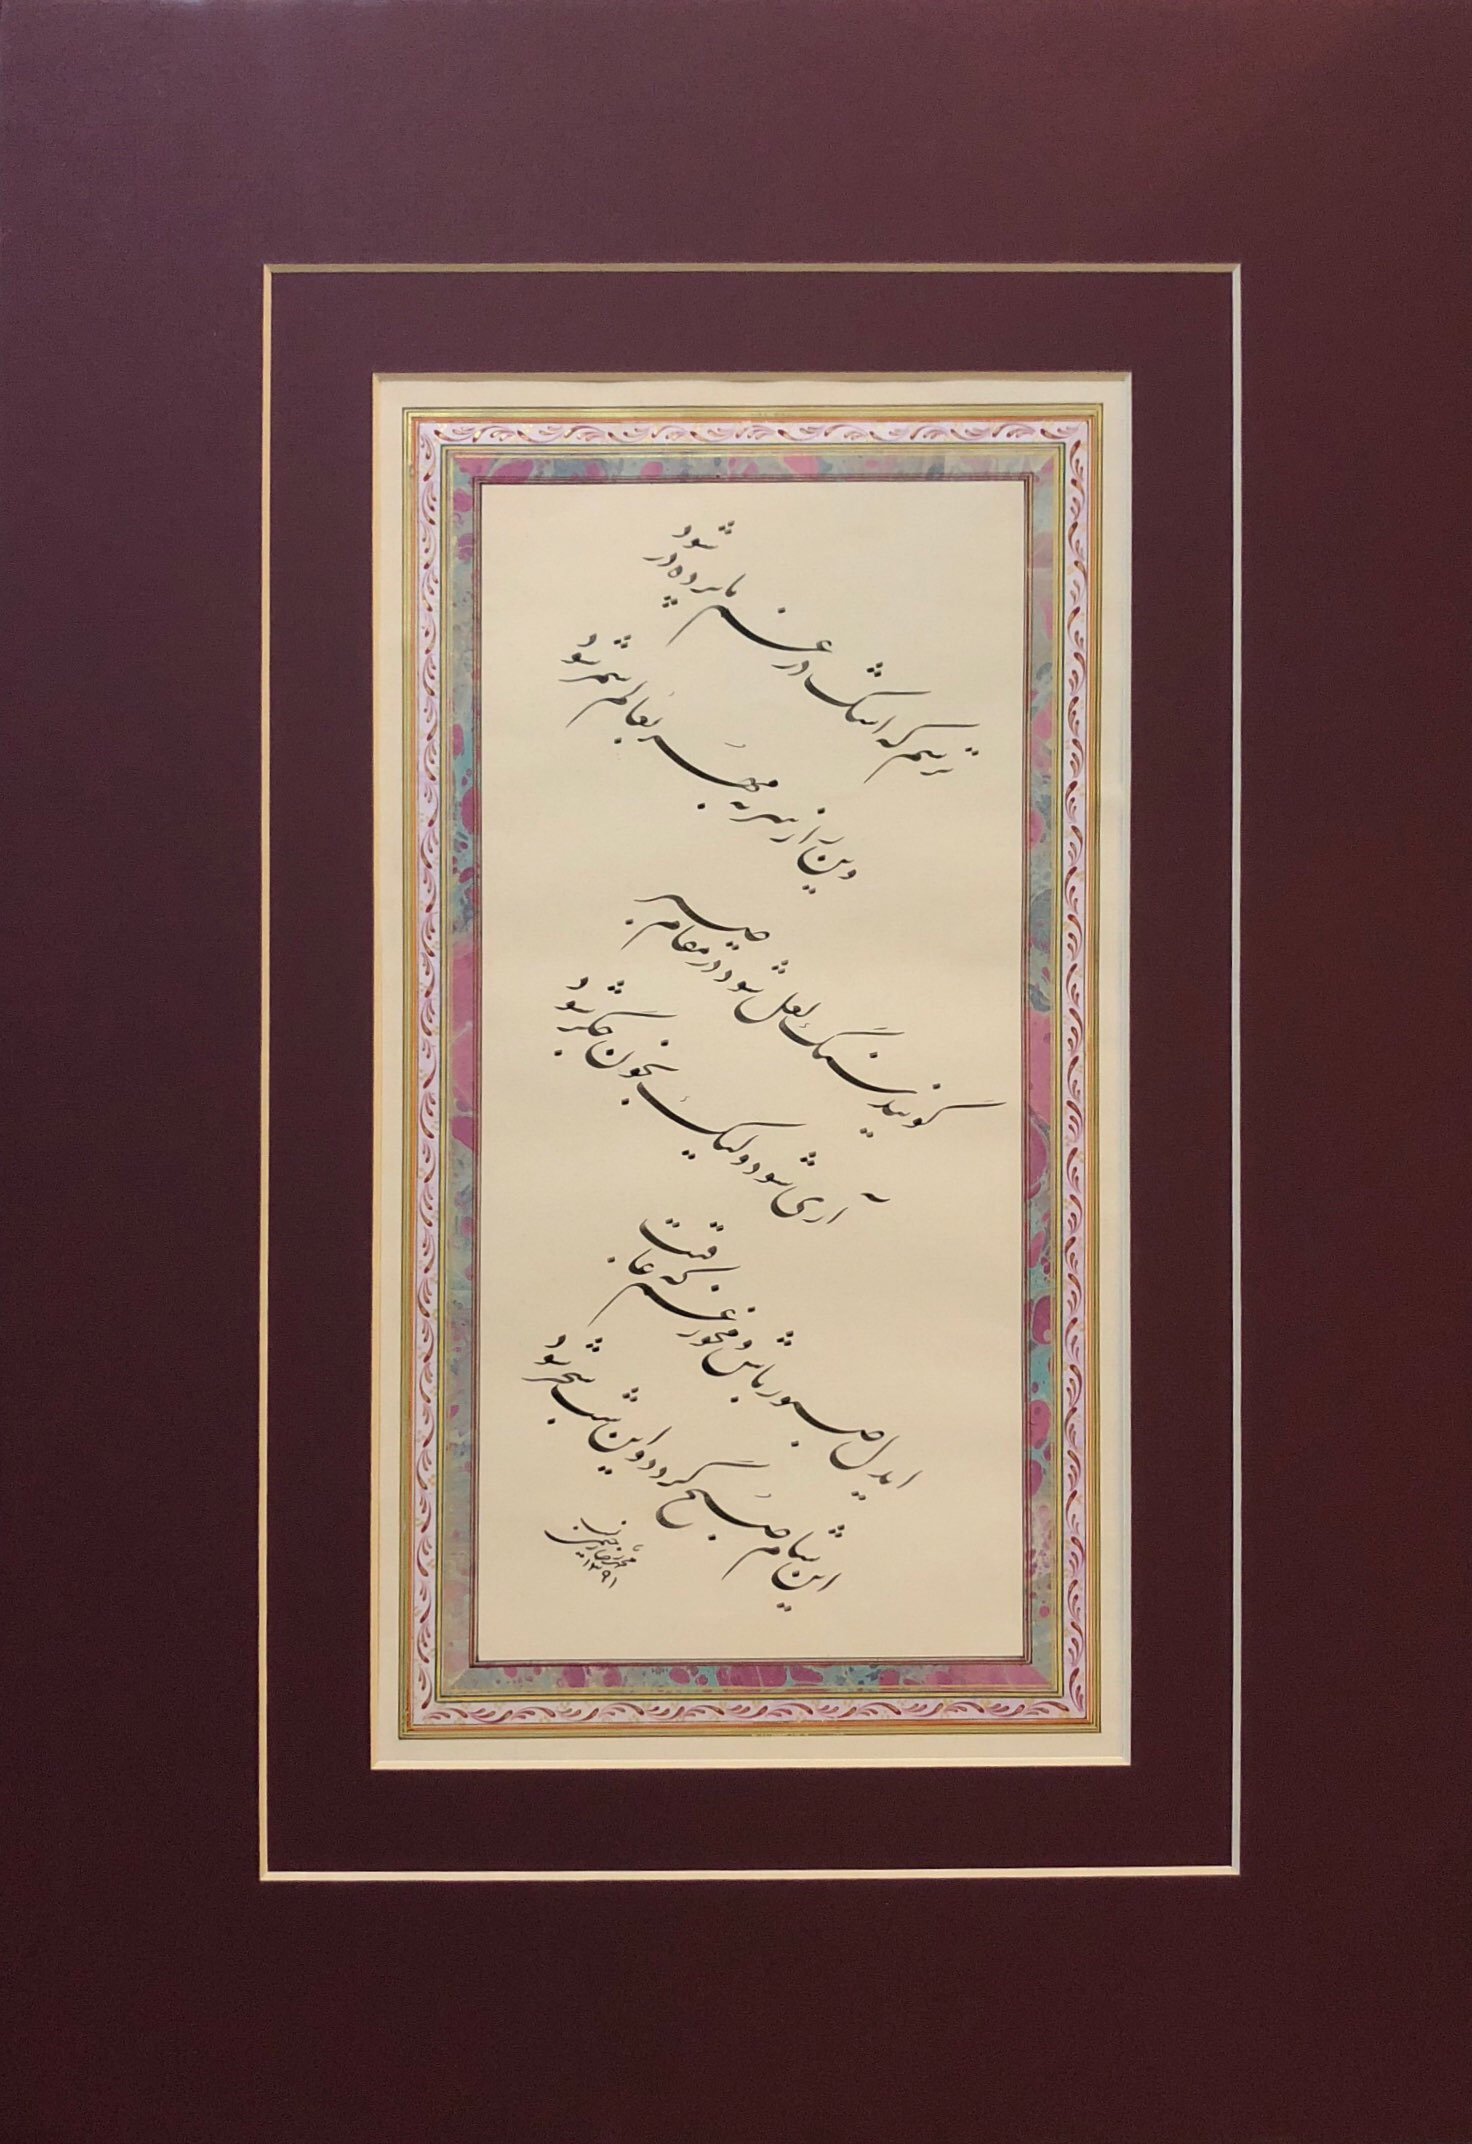 ترسم که اشک در غم ما پرده در شود
وین راز سر به مهر بعالم سمر شود
گویند سنگ لعل شود در مقام صبر
آری شود ولیک بخون جگر شود
ایدل صبور باش و مخور غم که عاقبت
این شام صبح گردد و این شب سحر شود
۱۳۹۱